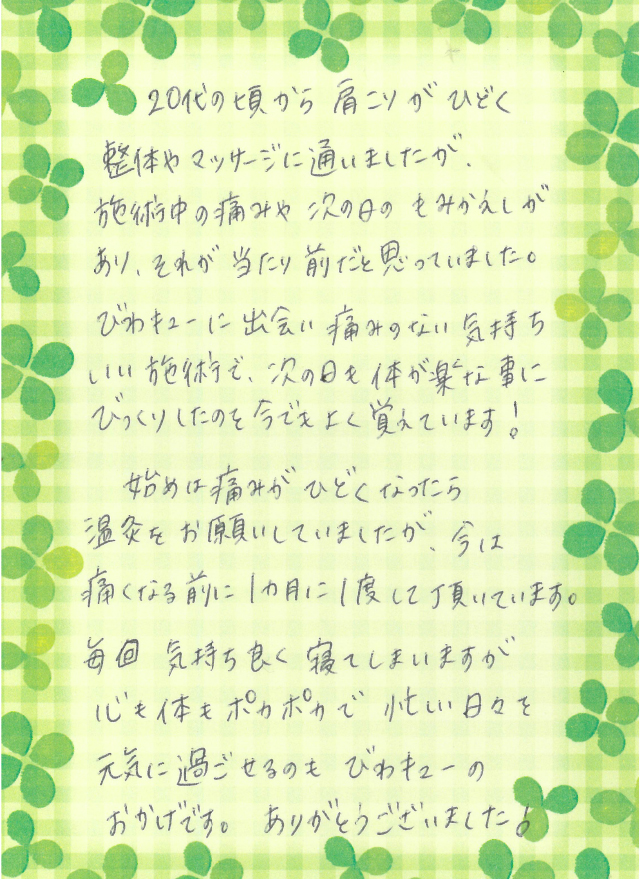 20代の頃から 肩こりが ひどく
整体や マッサージに通いましたが、
施術中の痛みや 次の日の もみかえしが
あり、それが 当たり前だと思っていました。
びわキューに 出会い 痛みのない 気持ち
いい 施術で、次の日も 体が楽な事に
びっくりしたのを 今でも よく 覚えています!
始めは 痛みが ひどく なったら
温灸を お願いしていましたが、今は
痛くなる前に 1カ月に1度して頂いています。
毎回 気持ち良く 寝てしまいますが
心も体も ポカポカで 忙しい日々を
元気に過ごせるのも びわキューの
おかげです。 ありがとうございました!